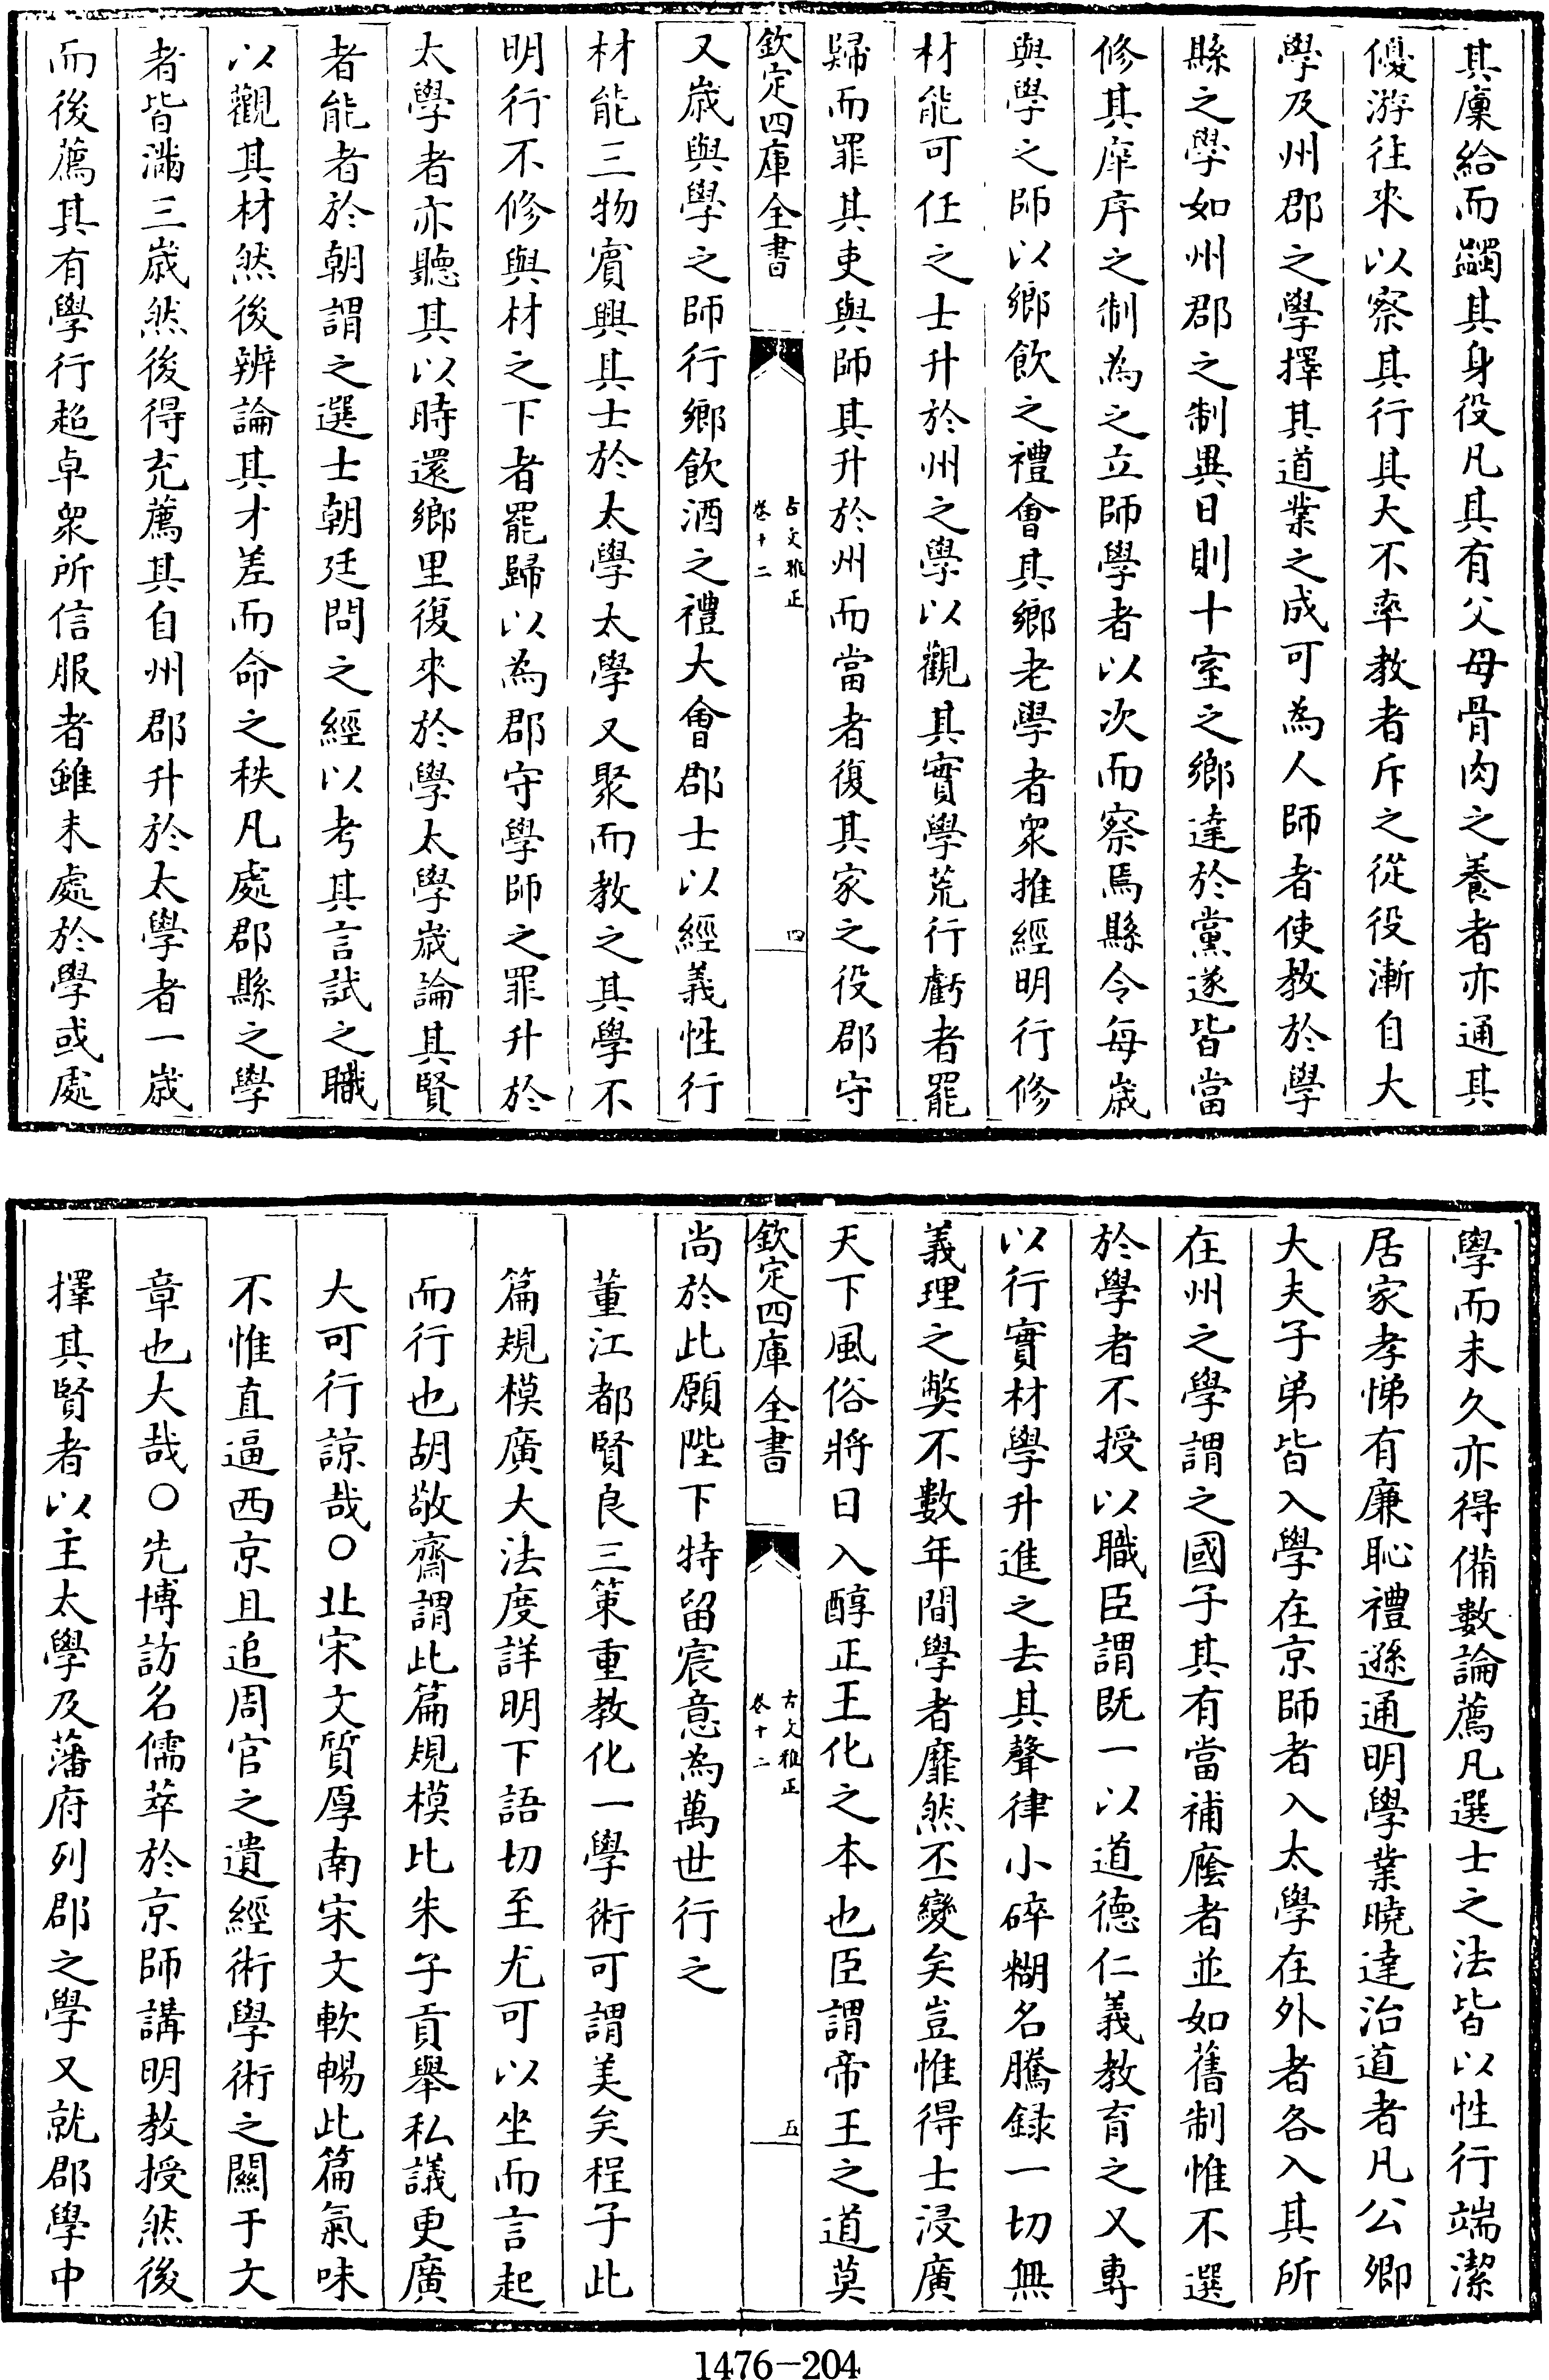 其廩給而蠲其身役凡其有父母骨肉之養者亦通其
優游往來以察其行其大不率教者斥之從役漸自大
學及州郡之學擇其道業之成可為人師者使教於學
縣之學如州郡之制異日則十室之鄉達於黨遂皆當
修其庠序之制為之立師學者以次而察焉縣令每歲
與學之師以鄉飲之禮會其鄉老學者衆推經明行修
材能可任之士升於州之學以觀其實學荒行虧者罷
歸而罪其吏與師其升於州而當者復其家之役郡守
欽定四庫全書
古文雅正
卷十二
四
又歲與學之師行鄉飲酒之禮大會郡士以經義性行
材能三物賓興其士於太學太學又聚而教之其學不
明行不修與材之下者罷歸以為郡守學師之罪升於
太學者亦聽其以時還鄉里復來於學太學歲論其賢
者能者於朝謂之選士朝廷問之經以考其言試之職
以觀其材然後辨論其才差而命之秩凡處郡縣之學
者皆滿三歲然後得充薦其自州郡升於太學者一歲
而後薦其有學行超卓衆所信服者雖未處於學或處
學而未久亦得備數論薦凡選士之法皆以性行端潔
居家孝悌有廉恥禮遜通明學業曉達治道者凡公卿
大夫子弟皆入學在京師者入太學在外者各入其所
在州之學謂之國子其有當補廕者並如舊制惟不選
於學者不授以職臣謂既一以道德仁義教育之又專
以行實材學升進之去其聲律小碎糊名騰録一切無
義理之獘不數年間學者靡然丕變矣豈惟得士浸廣
天下風俗將日入醇正王化之本也臣謂帝王之道莫
欽定四庫全書
古文雅正
卷十二
五
尚於此願陛下特留宸意為萬世行之
董江都賢良三策重教化一學術可謂美矣程子此
篇規模廣大法度詳明下語切至尤可以坐而言起
而行也胡敬齋謂此篇規模比朱子貢舉私議更廣
大可行諒哉○北宋文質厚南宋文軟暢此篇氣味
不惟直逼西京且追周官之遺經術學術之關于文
章也大哉○先博訪名儒萃於京師講明教授然後
擇其賢者以主太學及藩府列郡之學又就郡學中
1476-204